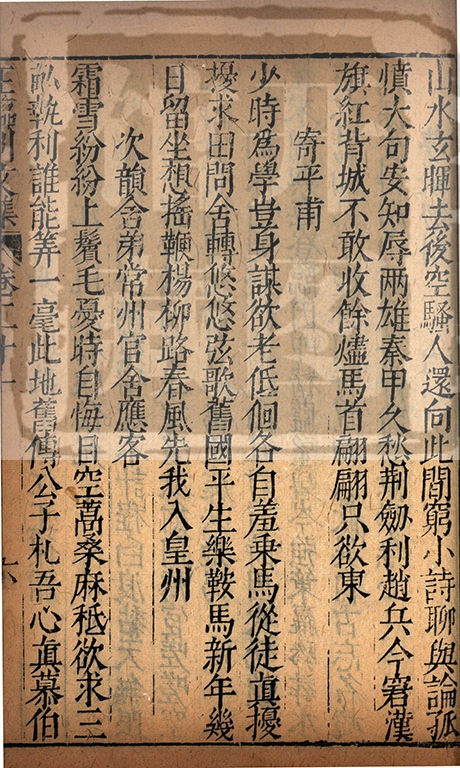 山水玄暉去後空騷人還向此間窮小詩聊與論孤
憤大句安知辱兩雄秦甲久愁荆劒利趙兵今窘漢
旗紅背城不敢收餘燼馬首翩翩只欲東
寄平甫
少時爲學豈身謀欲老低佪各自羞乗馬從徒真擾
擾求田問舍轉悠悠弦歌舊國平生樂鞍馬新年幾
日留坐想搖鞭楊柳路春風先我入皇州
次韻舍弟常州官舍應客
霜雪紛紛上鬢毛憂時自悔目空蒿桑麻秪欲求三
畝埶利誰能筭一毫此地舊傳公子札吾心真慕伯
王臨川文集 卷二十 六